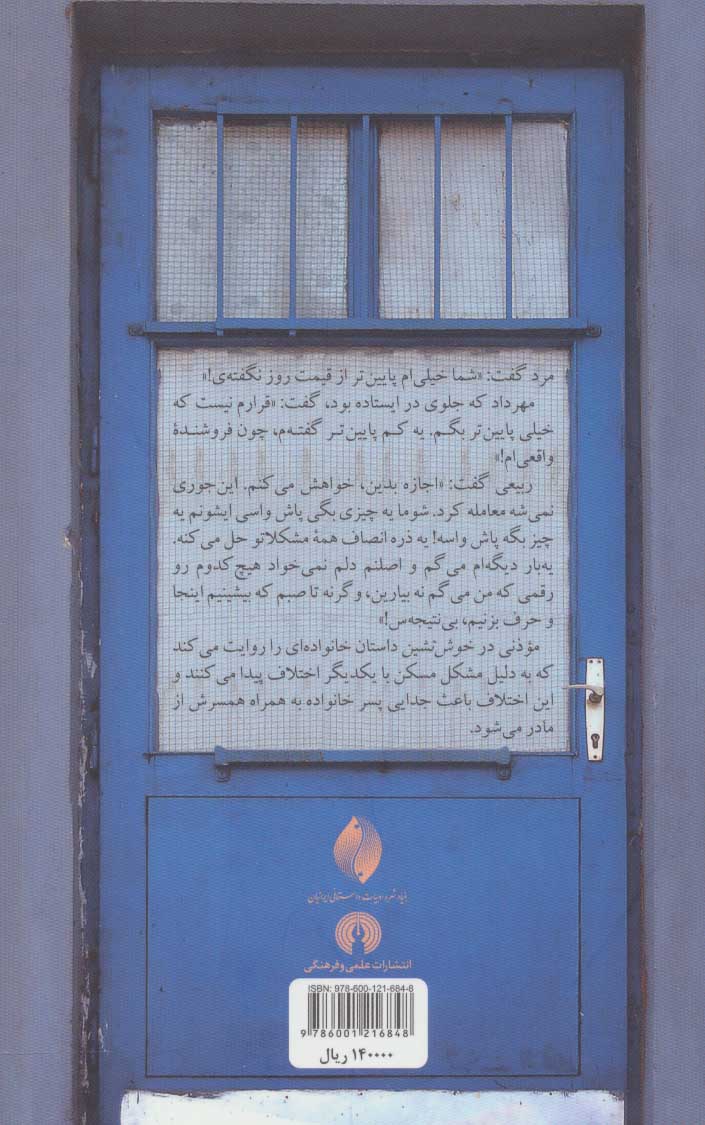 مرد گفت: «شما خیلی‌ام پایین‌تر از قیمت روز نگفته‌ی!»
مهرداد که جلوی در ایستاده بود، گفت: «قرارم نیست که
خیلی پایین‌تر بگم. یه کم پایین‌تر گفته‌م، چون فروشندۀ
واقعی‌ام!»
ربیعی گفت: «اجازه بدین، خواهش می‌کنم. این‌جوری
نمی‌شه معامله کرد. شوما یه چیزی بگی پاش واسی ایشونم یه
چیز بگه پاش واسه! یه ذره انصاف همۀ مشکلاتو حل می‌کنه.
یه‌بار دیگه‌ام می‌گم و اصلنم دلم نمی‌خواد هیچ‌کدوم رو
رقمی که من می‌گم نه بیارین، وگرنه تا صبم که بیشینیم اینجا
و حرف بزنیم، بی‌نتیجه‌س!»
مؤذنی در خوش‌نشین داستان خانواده‌ای را روایت می‌کند
که به دلیل مشکل مسکن با یکدیگر اختلاف پیدا می‌کنند و
این اختلاف باعث جدایی پسر خانواده به همراه همسرش از
مادر می‌شود.
بنیاد شعر و ادبیات داستانی ایرانیان
انتشارات علمی و فرهنگی
ISBN: 978-600-121-684-8
9 786001 216848
۱۴۰۰۰۰ ریال